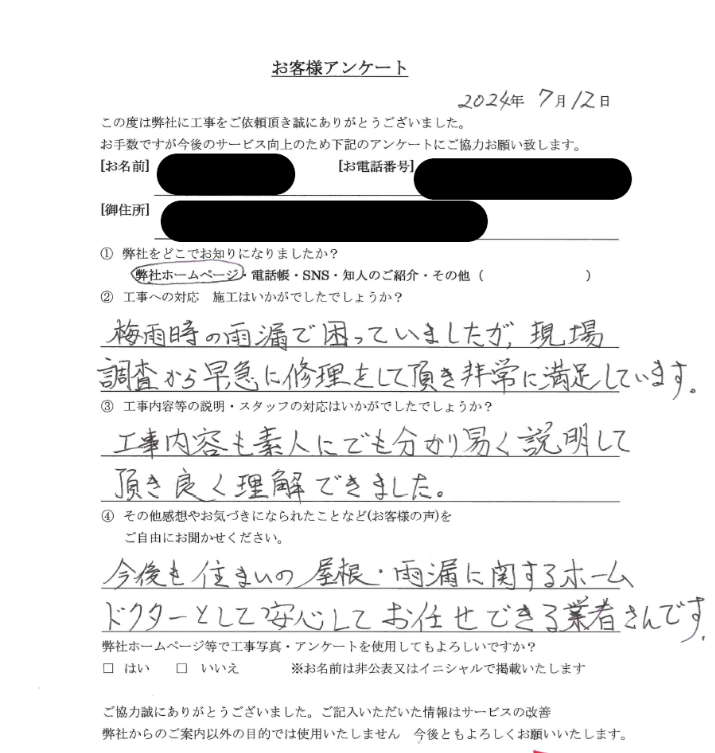 お客様アンケート
2024年 7月12日
この度は弊社に工事をご依頼頂き誠にありがとうございました。
お手数ですが今後のサービス向上のため下記のアンケートにご協力お願い致します。
[お名前] [お電話番号]
[御住所]
① 弊社をどこでお知りになりましたか?
弊社ホームページ・電話帳・SNS・知人のご紹介・その他( )
② 工事への対応 施工はいかがでしたでしょうか?
梅雨時の雨漏で困っていましたが、現場
調査から早急に修理をして頂き非常に満足しています。
③ 工事内容等の説明・スタッフの対応はいかがでしたでしょうか?
工事内容も素人にでも分かり易く説明して
頂き良く理解できました。
④ その他感想やお気づきになられたことなど(お客様の声)を
ご自由にお聞かせください。
今後も住まいの屋根・雨漏に関するホーム
ドクターとして安心してお任せできる業者さんです。
弊社ホームページ等で工事写真・アンケートを使用してもよろしいですか?
□ はい □ いいえ ※お名前は非公表又はイニシャルで掲載いたします
ご協力誠にありがとうございました。ご記入いただいた情報はサービスの改善
弊社からのご案内以外の目的では使用いたしません 今後ともよろしくお願いいたします。